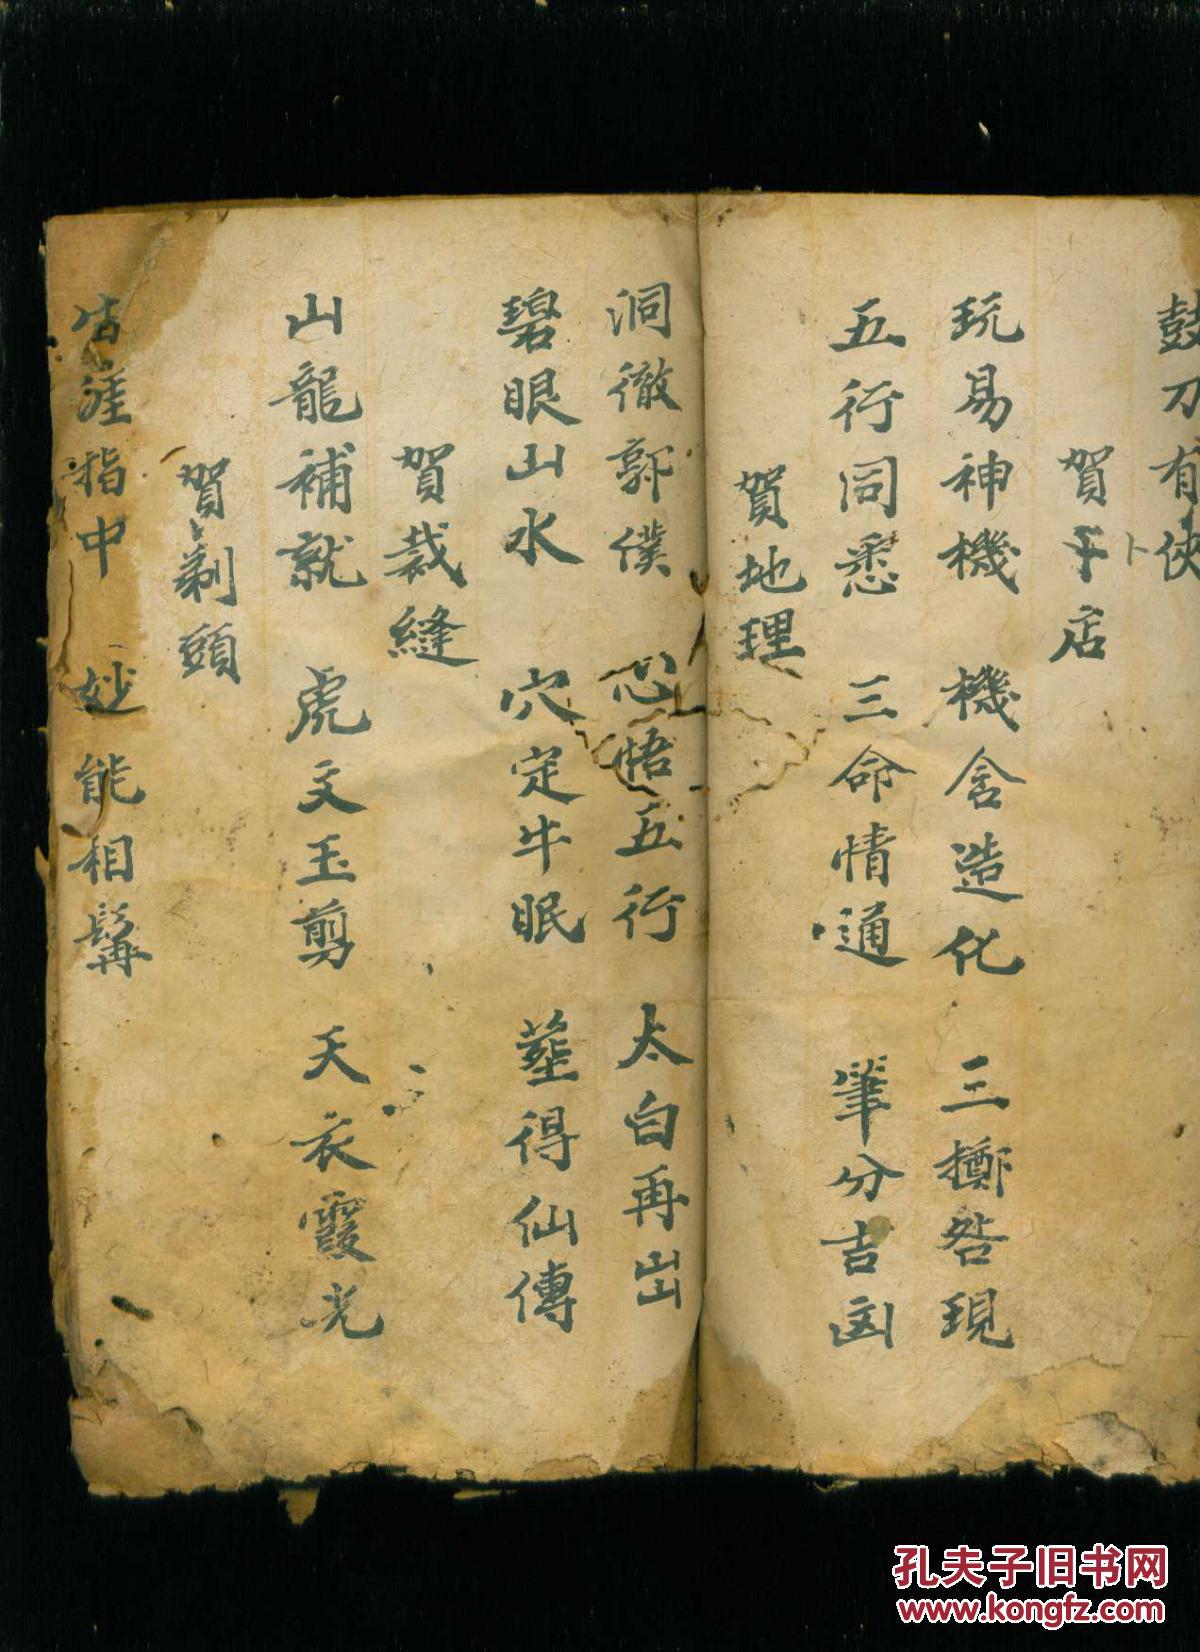 鼓刀有俠
賀卞店
卜
玩易神機 機含造化 三擲咎現
五行同悉 三命情通 筆分吉凶
賀地理
洞徹郭僕 心悟五行 太白再出
碧眼山水 穴定牛眠 塟得仙傳
賀裁縫
山龍補就 虎文玉剪 天衣霞光
賀剃頭
生涯指中 妙能相髯
孔夫子旧书网
www.kongfz.com